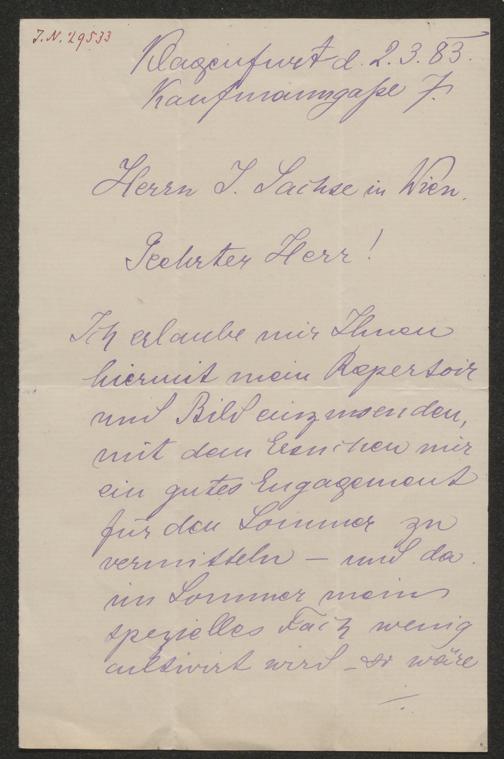 I.N. 29533
Klagenfurt d. 2.3.83.
Kaufmanngaße 7.
Herrn J. Sachse in Wien.
Geehrter Herr!
Ich erlaube mir Ihnen
hiermit mein Repertoir
und Bild einzusenden,
mit dem Ersuchen mir
ein gutes Engagement
für den Sommer zu
vermitteln – und da
im Sommer mein
spezielles Fach wenig
cultivirt wird – so wäre